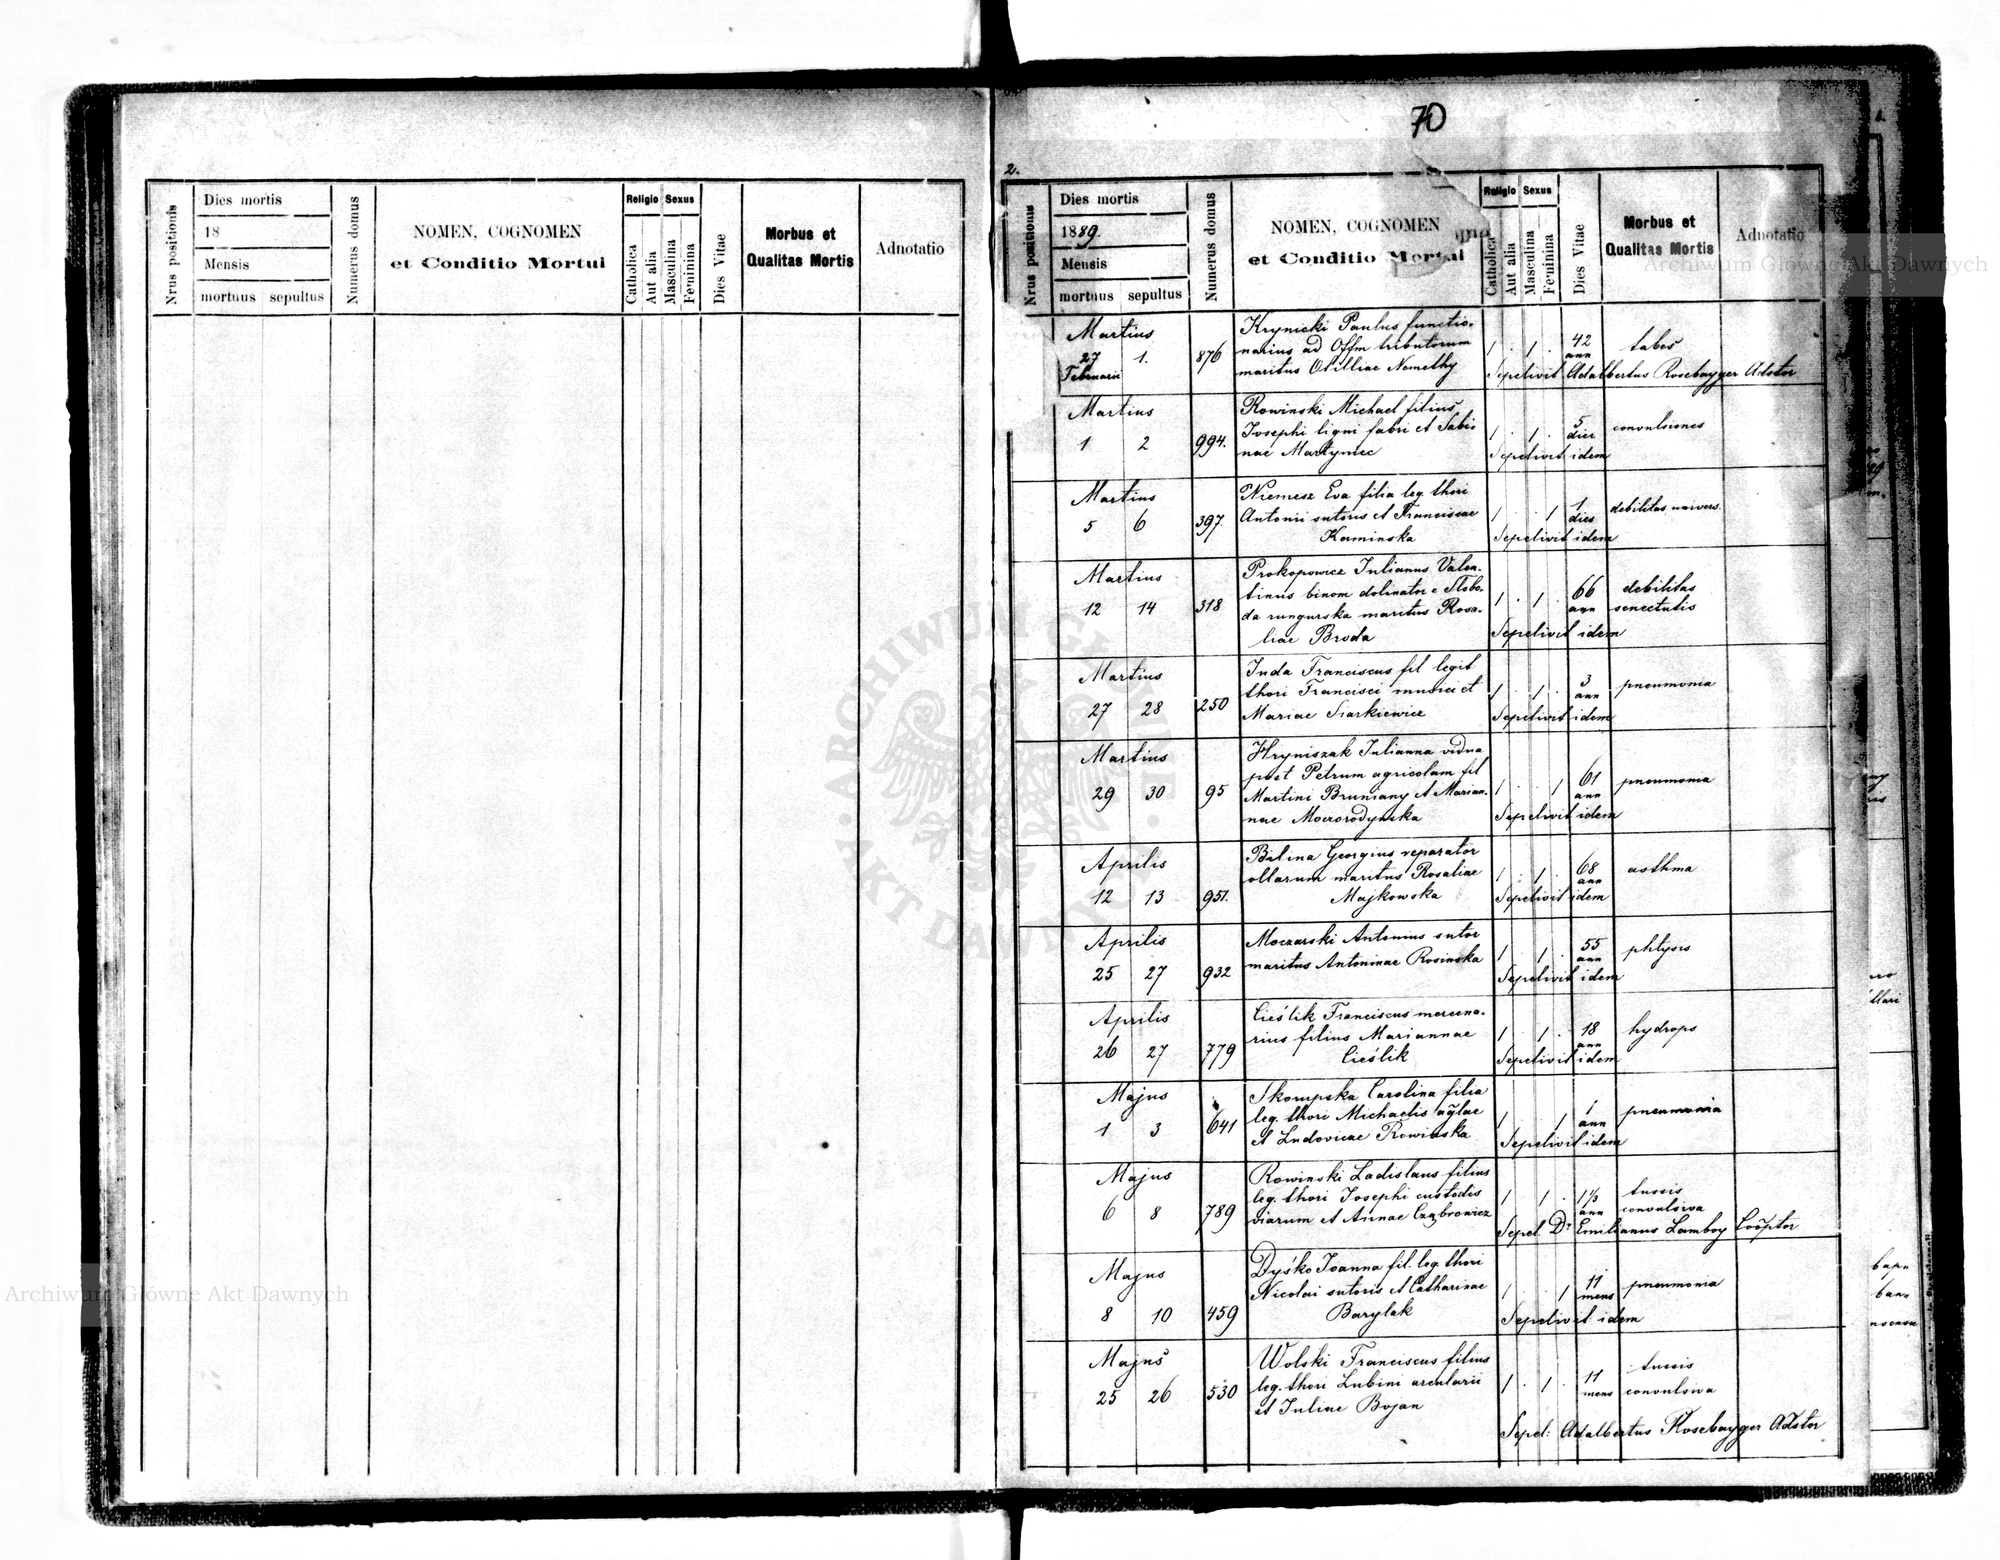 Nrus positionis
Dies mortis
18
Mensis
mortuus sepultus
Numerus domus
NOMEN, COGNOMEN
et Conditio Mortui
Religio Sexus
Catholica
Aut alia
Masculina
Feminina
Dies Vitae
Morbus et
Qualitas Mortis
Adnotatio
70
2.
Nrus positionis
Dies mortis
1889.
Mensis
mortuus sepultus
Numerus domus
NOMEN, COGNOMEN
et Conditio Mortui
Religio Sexus
Catholica
Aut alia
Masculina
Feminina
Dies Vitae
Morbus et
Qualitas Mortis
Adnotatio
Martius
27 1.
Februarii
876
Krynicki Paulus functio-
narius ad Offm tributorum
maritus Otilliae Nemethy
1 . 1 .
42
ann
tabes
Sepelivit Adalbertus Rosebayger Adstor
Martius
1 2
994.
Rowinski Michael filius
Josephi ligni fabri et Sabi-
nae Martyniec
1 . 1 .
5
dies
convulsiones
Sepelivit idem
Martius
5 6
397.
Niemesz Eva filia leg. thori
Antonii sutoris et Franciscae
Kaminska
1 . . 1
1
dies
debilitas univers.
Sepelivit idem
Martius
12 14
318
Prokopowicz Julianus Valen-
tinus binom dolinator e Slobo-
da rungurska maritus Rosa-
liae Broda
1 . 1 .
66
ann
debilitas
senectutis
Sepelivit idem
Martius
27 28
250
Juda Franciscus fil legit
thori Francisci musici et
Mariae Siarkiewicz
1 . 1 .
3
ann
pneumonia
Sepelivit idem
Martius
29 30
95
Hryniszak Julianna vidua
post Petrum agricolam fil
Martini Bruniany et Marian-
nae Moczorodynska
1 . . 1
61
ann
pneumonia
Sepelivit idem
Aprilis
12 13
951.
Bilina Georgius reparator
ollarum maritus Rosaliae
Majkowska
1 . 1 .
68
ann
asthma
Sepelivit idem
Aprilis
25 27
932
Moczarski Antonius sutor
maritus Antoninae Rosinska
1 . 1 .
55
ann
phtysis
Sepelivit idem
Aprilis
26 27
779
Cieślik Franciscus mercena-
rius filius Mariannae
Cieślik
1 . 1 .
18
ann
hydrops
Sepelivit idem
Majus
1 3
641
Skorupska Carolina filia
leg. thori Michaelis aglae
et Ludovicae Rowinska
1 . . 1
1
ann
pneumonia
Sepelivit idem
Majus
6 8
789
Rowinski Ladislaus filius
leg. thori Josephi custodis
viarum et Annae Czabrowicz
1 . 1 .
1 1/3
ann
tussis
convulsiva
Sepel. Dr Emilianus Lamboy Cooptor
Majus
8 10
459
Dyśko Joanna fil. leg. thori
Nicolai sutoris et Catharinae
Barylak
1 . . 1
11
mens
pneumonia
Sepelivit idem
Majus
25 26
530
Wolski Franciscus filius
leg. thori Lubini arcularii
et Juliae Bojan
1 . 1 .
11
mens
tussis
convulsiva
Sepel: Adalbertus Rosebayger Adstor
Archiwum Główne Akt Dawnych
Archiwum Główne Akt Dawnych
ARCHIWUM GŁÓWNE AKT DAWNYCH